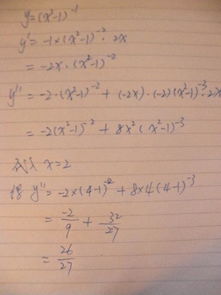 y=(x²-1)⁻¹
y'=-1×(x²-1)⁻²·2x
=-2x·(x²-1)⁻²
y''=-2·(x²-1)⁻²+(-2x)·(-2)(x²-1)⁻³·2x
=-2(x²-1)⁻²+8x²(x²-1)⁻³
x=2
得 y''=-2×(4-1)⁻²+8×4(4-1)⁻³
=-2/9+32/27
=26/27